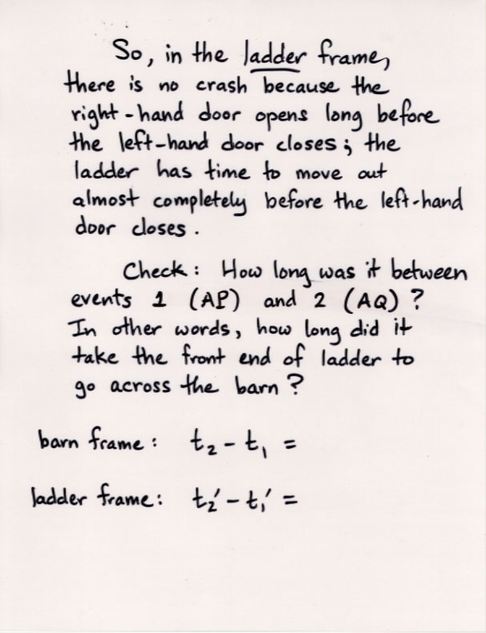 So, in the ladder frame,
there is no crash because the
right-hand door opens long before
the left-hand door closes; the
ladder has time to move out
almost completely before the left-hand
door closes.
Check: How long was it between
events 1 (AP) and 2 (AQ)?
In other words, how long did it
take the front end of ladder to
go across the barn?
barn frame: t₂ - t₁ =
ladder frame: t₂' - t₁' =